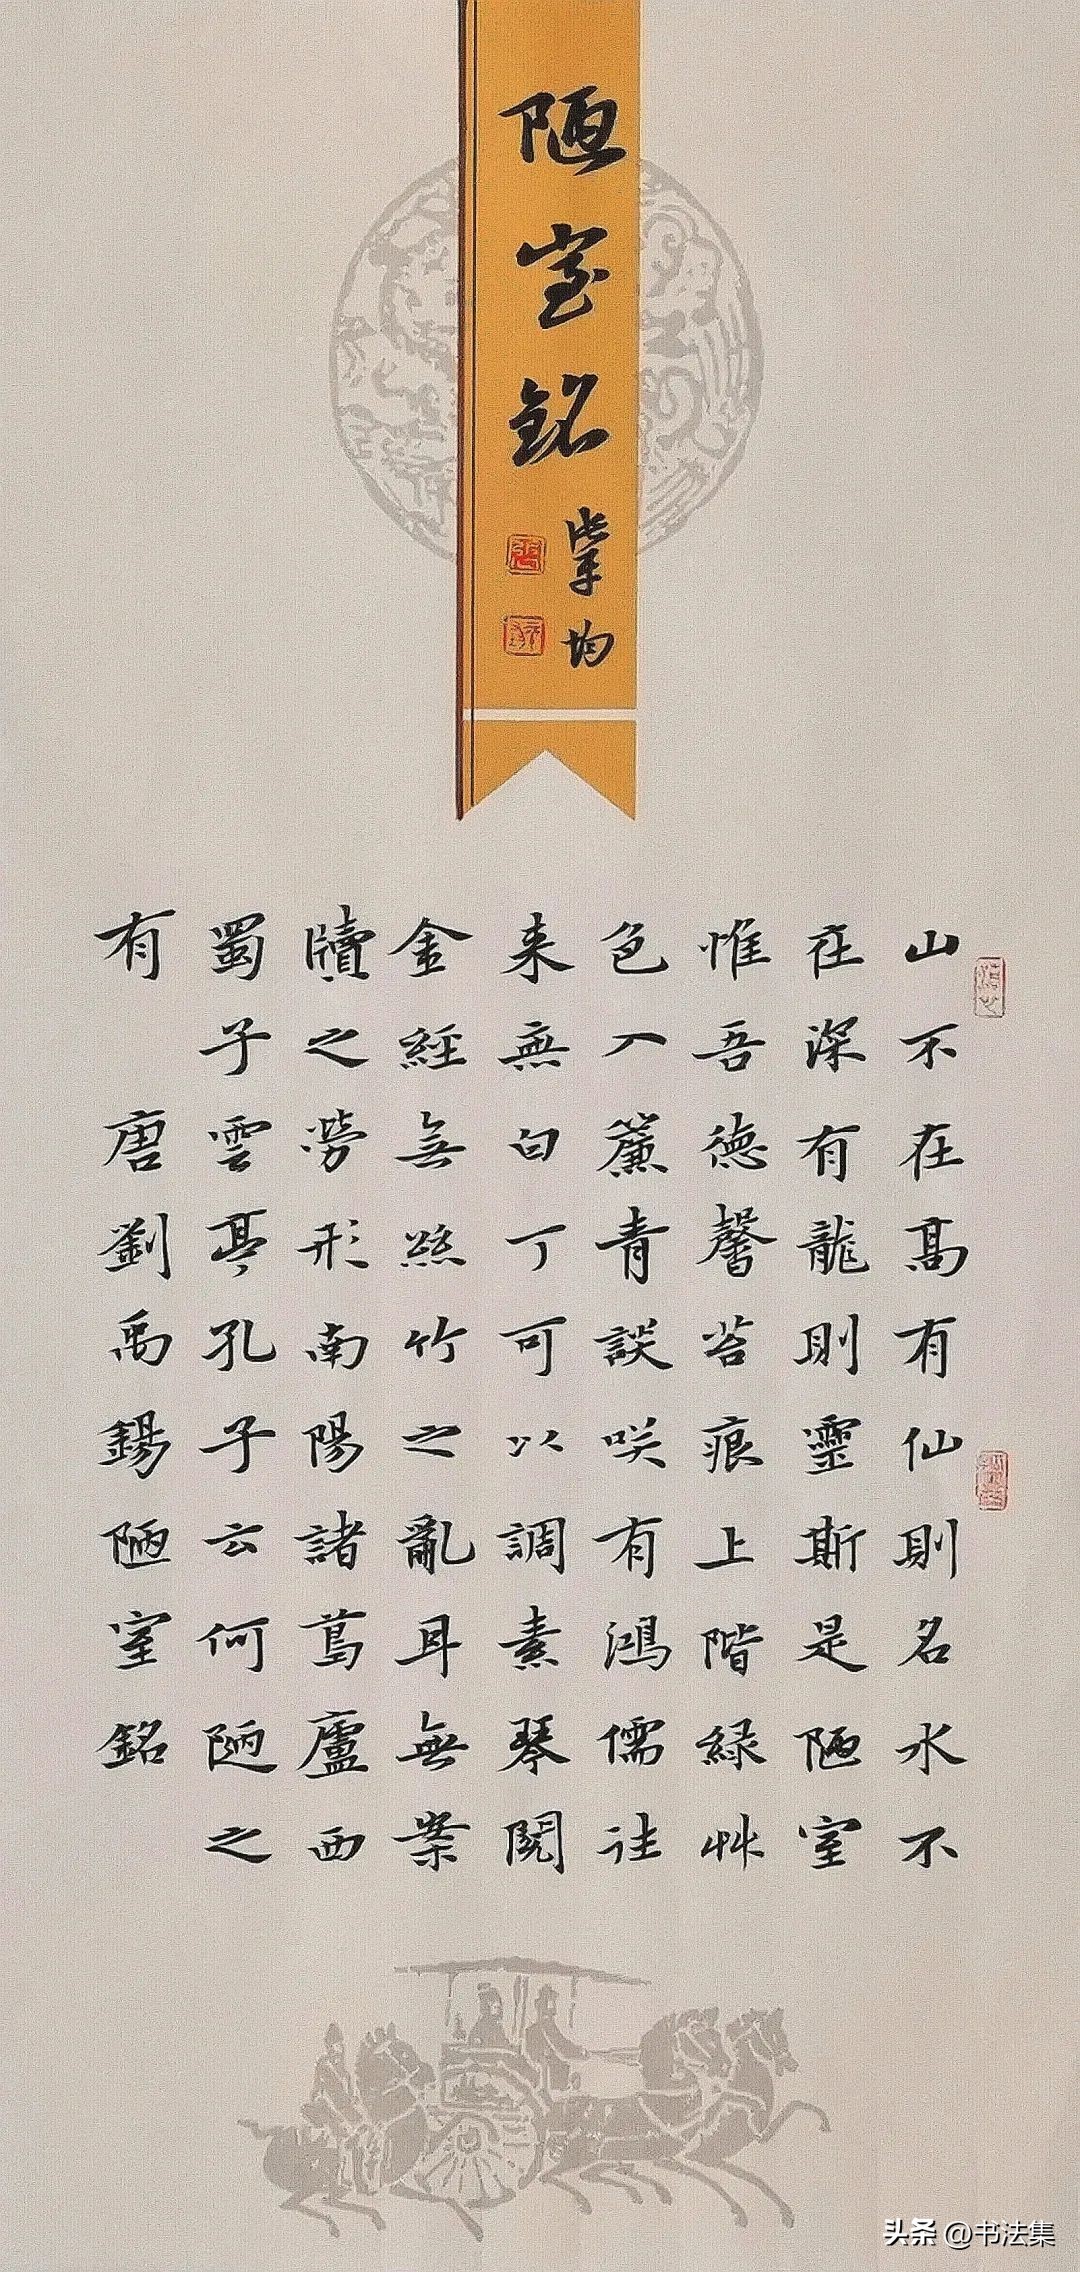 陋室銘
肇均
山不在高有仙則名水不
在深有龍則靈斯是陋室
惟吾德馨苔痕上階綠艸
色入簾青談咲有鴻儒往
来無白丁可以調素琴閱
金經無絲竹之亂耳無案
牘之勞形南陽諸葛廬西
蜀子雲亭孔子云何陋之
有 唐劉禹錫陋室銘
头条 @书法集